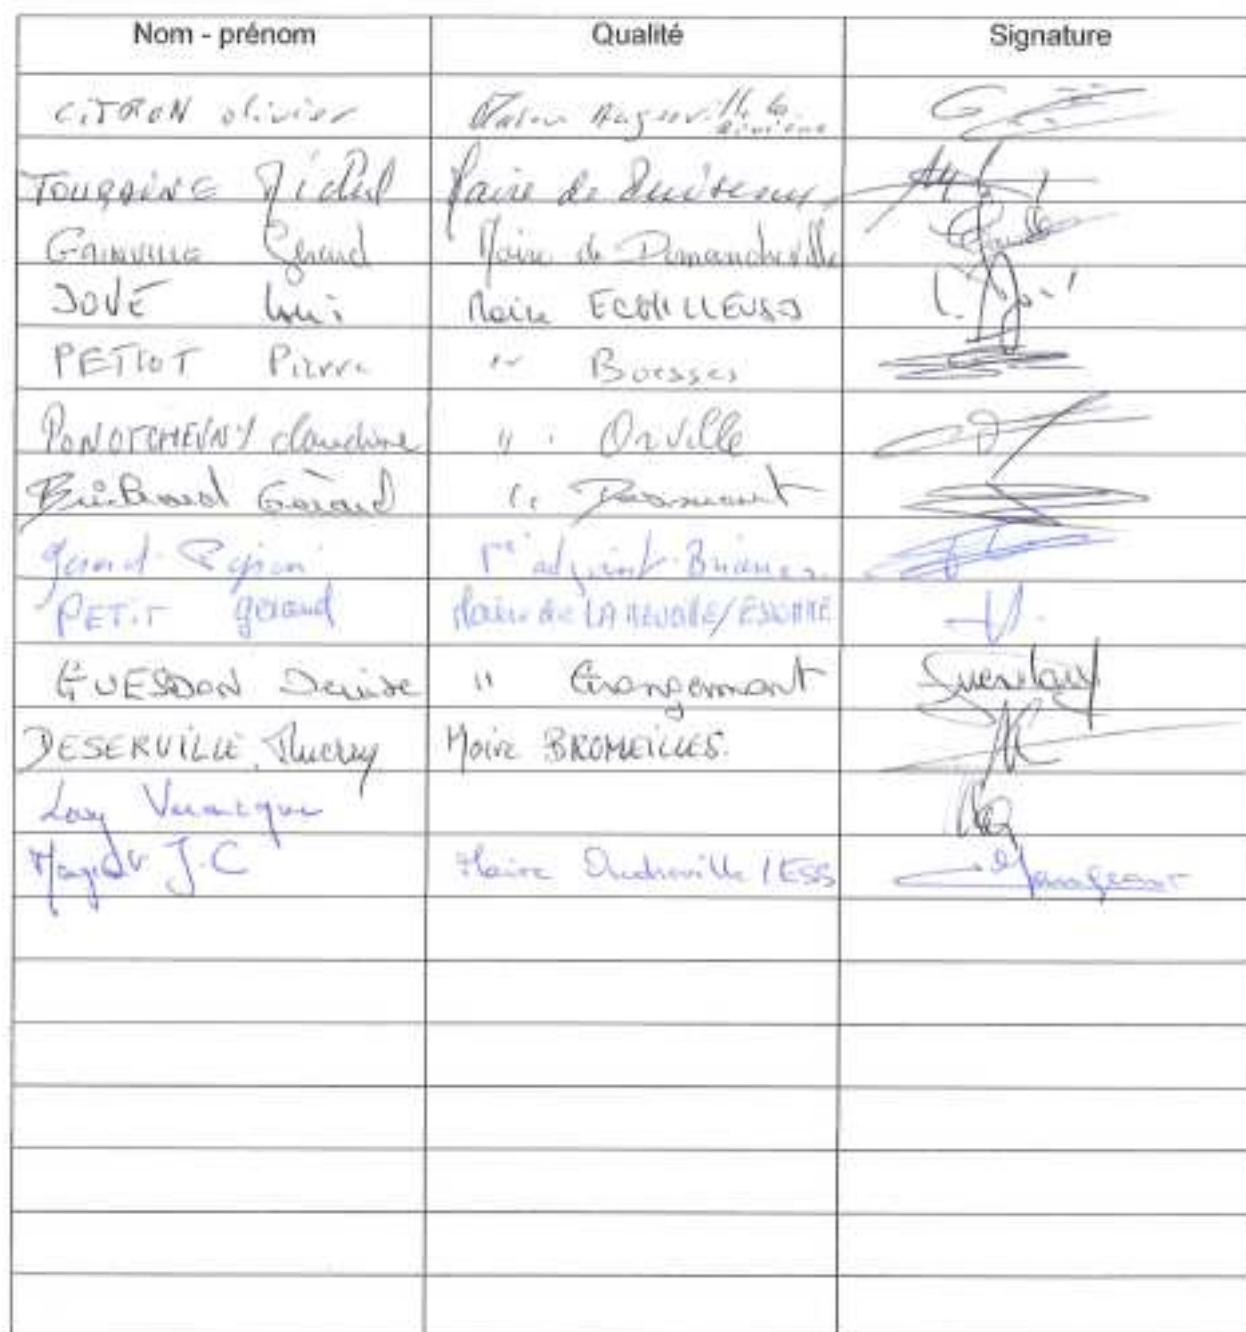 Nom - prénom Qualité Signature
CITRON olivier Maire Augerville la
Rivière
TOURAINE Michel Maire de Puiseaux
GAINVILLE Gérard Maire de Dimancheville
JOVÉ Louis Maire ECHILLEUSES L. Jové
PETIOT Pierre " Boesses
PONOTCHEVNY claudine " Orville
Gérard " Desmonts
Gérard 1er adjoint Briarres
PETIT gérard Maire de LA NEUVILLE/ESSONNE
GUESDON Denise " Grangermont Guesdon
DESERVILLE Thierry Maire BROMEILLES.
Véronique
J.C Maire Ondreville / ESS